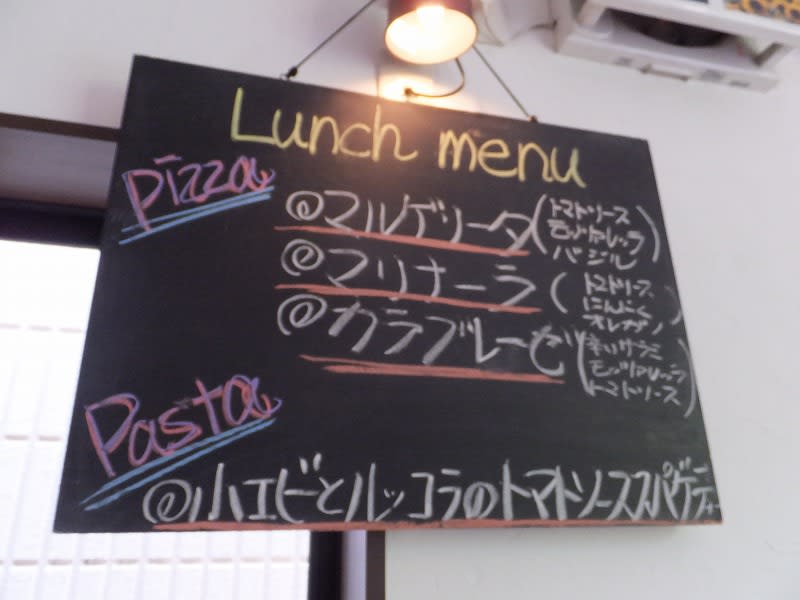 Lunch menu
Pizza
@マルゲリータ(トマトソース
モッツァレッラ
バジル)
@マリナーラ(トマトソース
にんにく
オレガノ)
@カラブレーゼ(辛いサラミ
モッツァレッラ
トマトソース)
Pasta
@小エビとルッコラのトマトソーススパゲティー